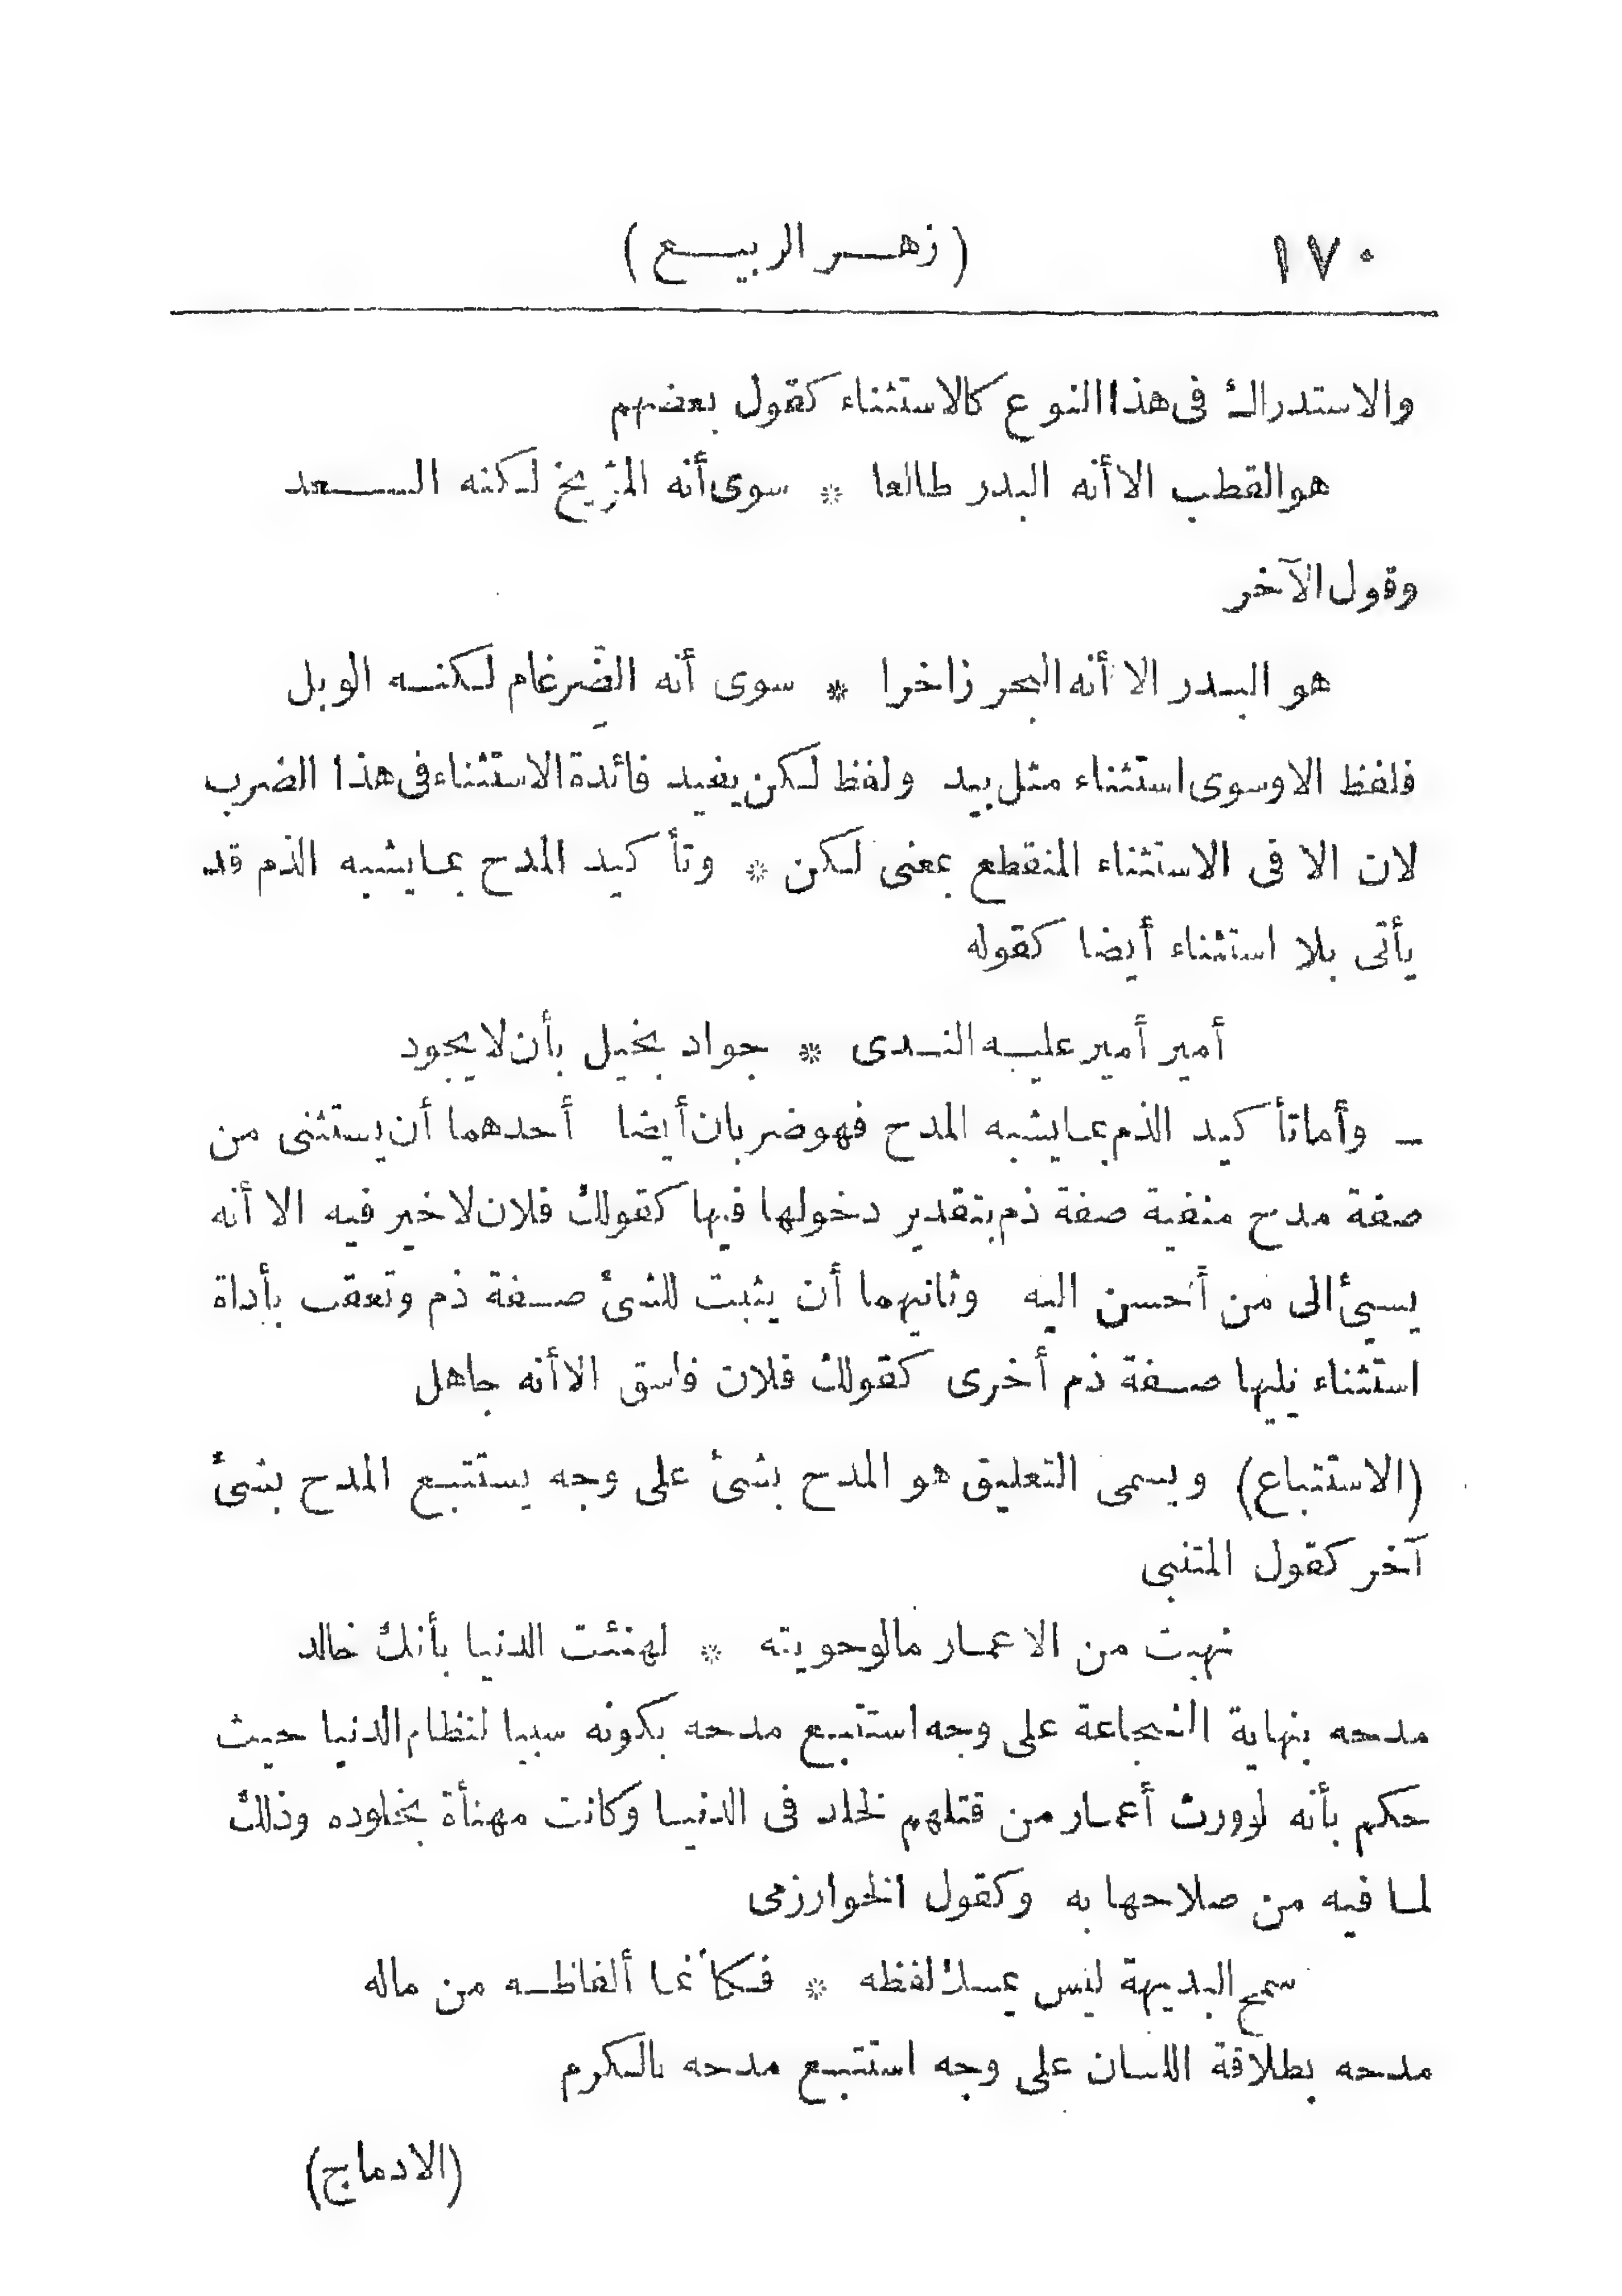 ١٧٠ (زهر الربيع)
والاستدراك فى هذا النوع كالاستثناء كقول بعضهم
هو القطب الا أنه البدر طالعا * سوى أنه المرّيخ لكنه السعد
وقول الآخر
هو البدر الا أنه البحر زاخرا * سوى أنه الضِّرغام لكنه الوبل
فلفظ الا وسوى استثناء مثل بيد ولفظ لكن يفيد فائدة الاستثناء فى هذا الضرب
لان الا فى الاستثناء المنقطع بمعنى لكن * وتأكيد المدح بما يشبه الذم قد
يأتى بلا استثناء أيضا كقوله
أمير أمير عليه الندى * جواد بخيل بأن لا يجود
ـ وأما تأكيد الذم بما يشبه المدح فهو ضربان أيضا أحدهما أن يستثنى من
صفة مدح منفية صفة ذم بتقدير دخولها فيها كقولك فلان لا خير فيه الا أنه
يسىئ الى من أحسن اليه وثانيهما أن يثبت للشئ صفة ذم وتعقب بأداة
استثناء يليها صفة ذم أخرى كقولك فلان فاسق الا أنه جاهل
(الاستتباع) ويسمى التعليق هو المدح بشئ على وجه يستتبع المدح بشئ
آخر كقول المتنبى
نهبت من الاعمار مالو حويته * لهنئت الدنيا بأنك خالد
مدحه بنهاية الشجاعة على وجه استتبع مدحه بكونه سببا لنظام الدنيا حيث
حكم بأنه لو ورث أعمار من قتلهم لخلد فى الدنيا وكانت مهنأة بخلوده وذلك
لما فيه من صلاحها به وكقول الخوارزمى
سمح البديهة ليس يمسك لفظه * فكأنما ألفاظه من ماله
مدحه بطلاقة اللسان على وجه استتبع مدحه بالكرم
(الادماج)